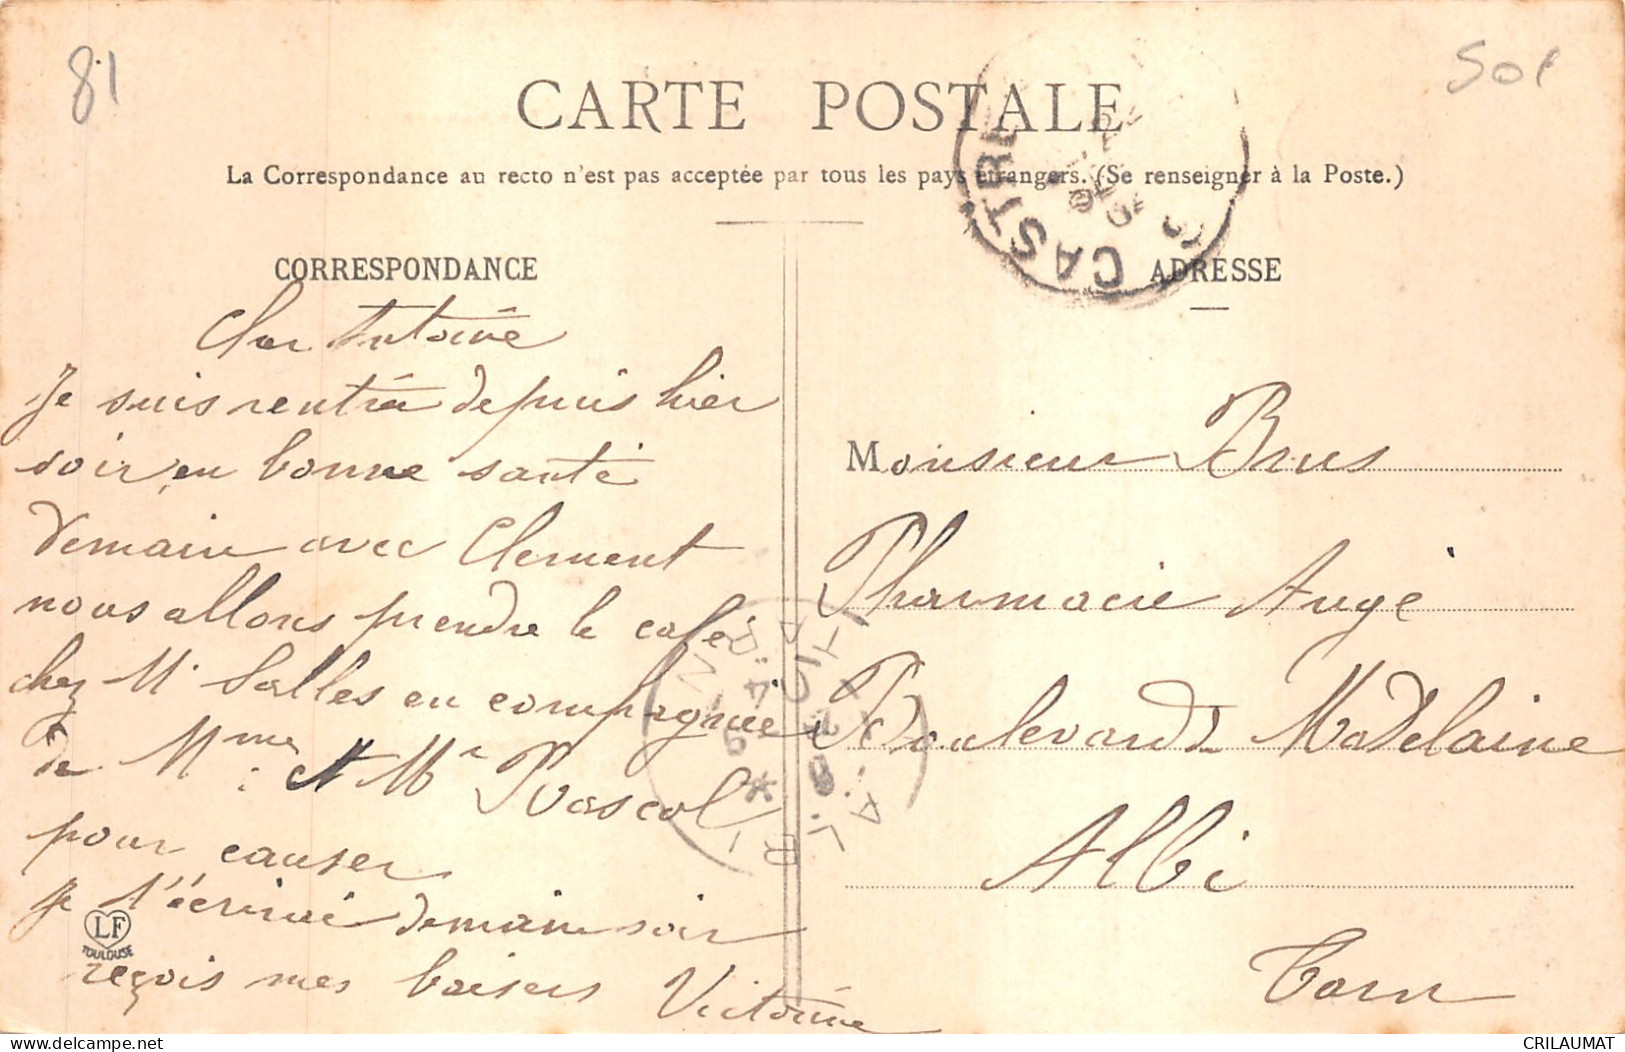 81
CARTE POSTALE
La Correspondance au recto n'est pas acceptée par tous les pays étrangers. (Se renseigner à la Poste.)
CASTRES
CORRESPONDANCE
Cher Antoine
Je suis rentrée depuis hier
soir en bonne santé
demain avec Clement
nous allons prendre le café
chez Mr Salles en compagnie
de Mme et Mr Rascol
pour causer
je t'écrirai demain soir
reçois mes baisers Victorine
LF
TOULOUSE
ADRESSE
Monsieur Brus
Pharmacie Augé
Boulevard Madelaine
Albi
Tarn
ALBI
TARN
delcampe.net
CRILAUMAT